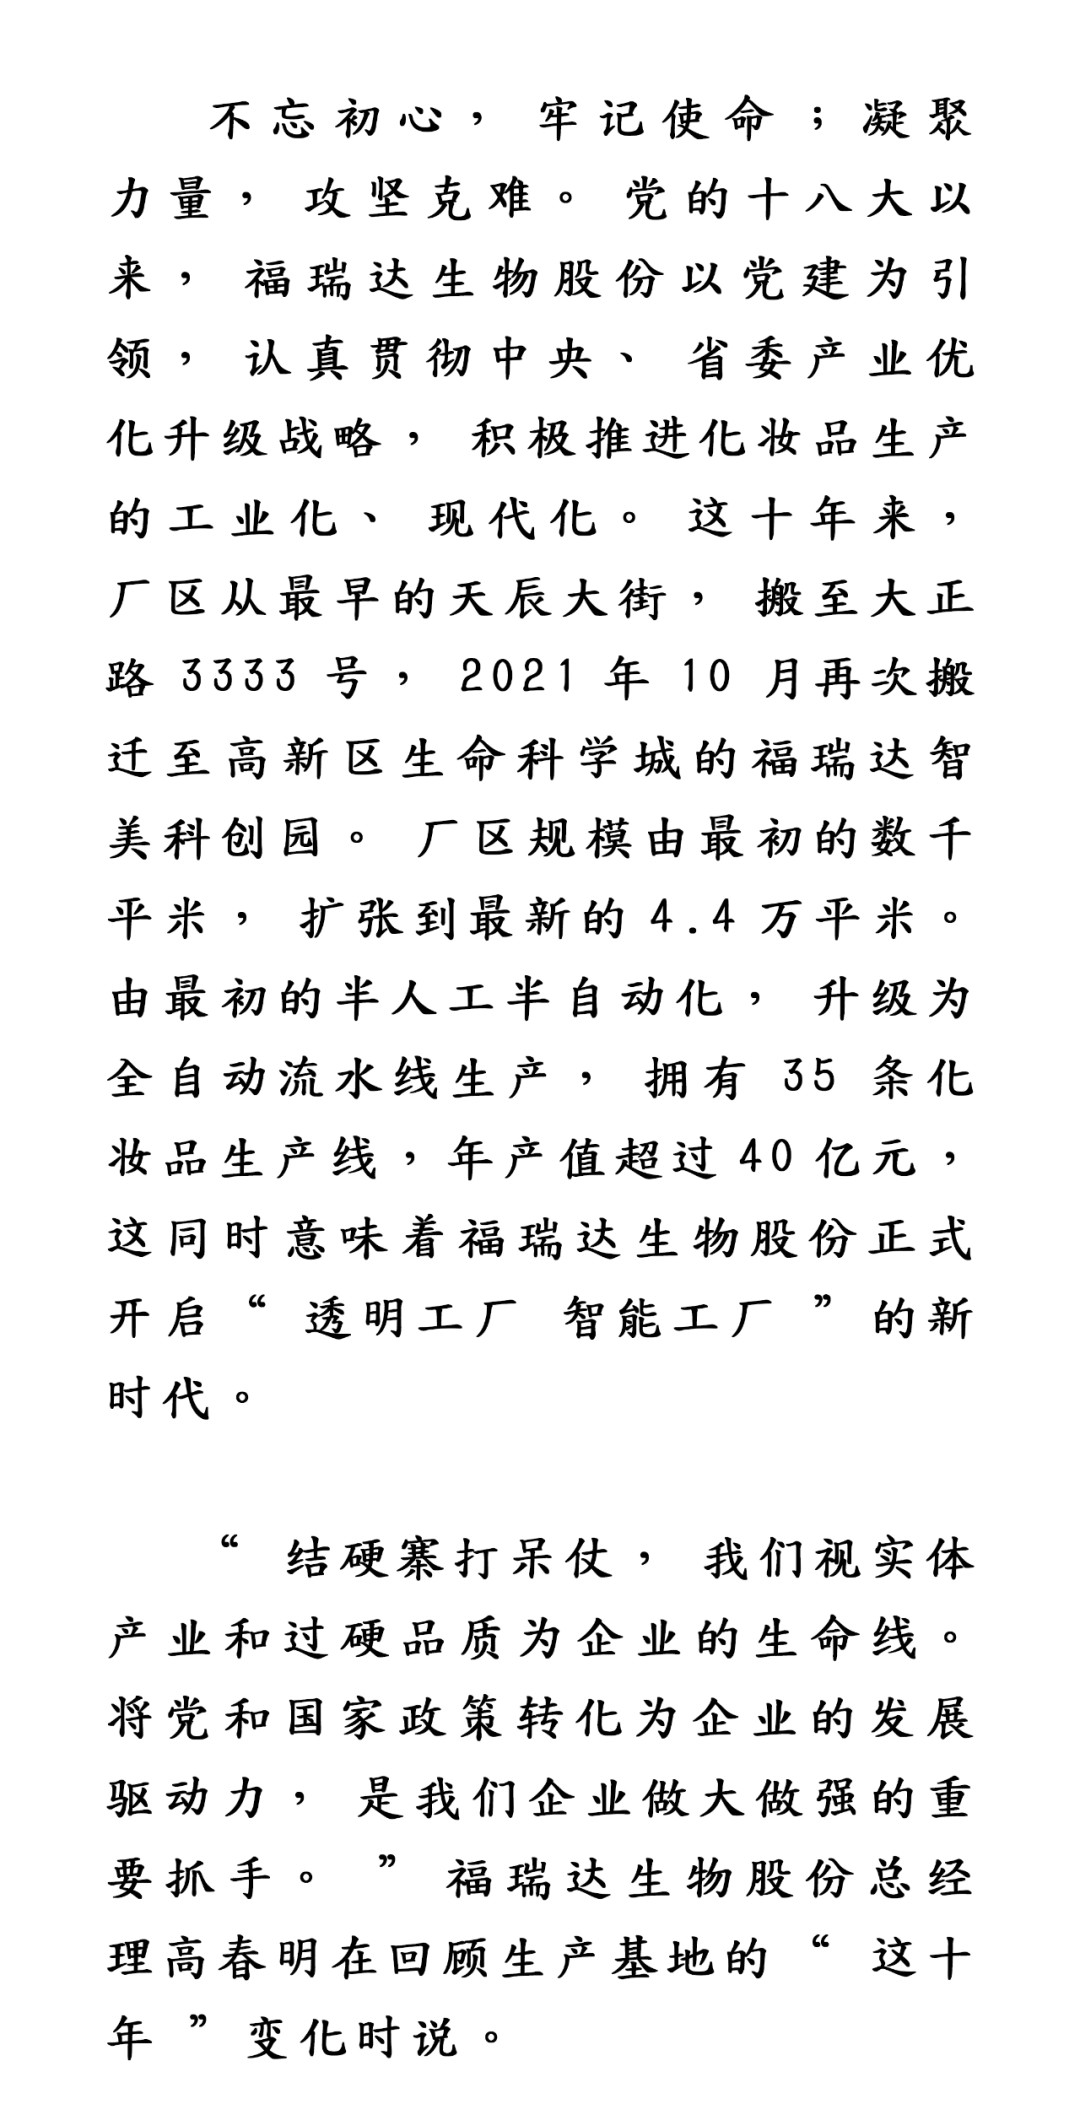 不忘初心，牢记使命；凝聚
力量，攻坚克难。党的十八大以
来，福瑞达生物股份以党建为引
领，认真贯彻中央、省委产业优
化升级战略，积极推进化妆品生产
的工业化、现代化。这十年来，
厂区从最早的天辰大街，搬至大正
路3333号，2021年10月再次搬
迁至高新区生命科学城的福瑞达智
美科创园。厂区规模由最初的数千
平米，扩张到最新的4.4万平米。
由最初的半人工半自动化，升级为
全自动流水线生产，拥有35条化
妆品生产线，年产值超过40亿元，
这同时意味着福瑞达生物股份正式
开启“透明工厂 智能工厂”的新
时代。
“结硬寨打呆仗，我们视实体
产业和过硬品质为企业的生命线。
将党和国家政策转化为企业的发展
驱动力，是我们企业做大做强的重
要抓手。”福瑞达生物股份总经
理高春明在回顾生产基地的“这十
年”变化时说。